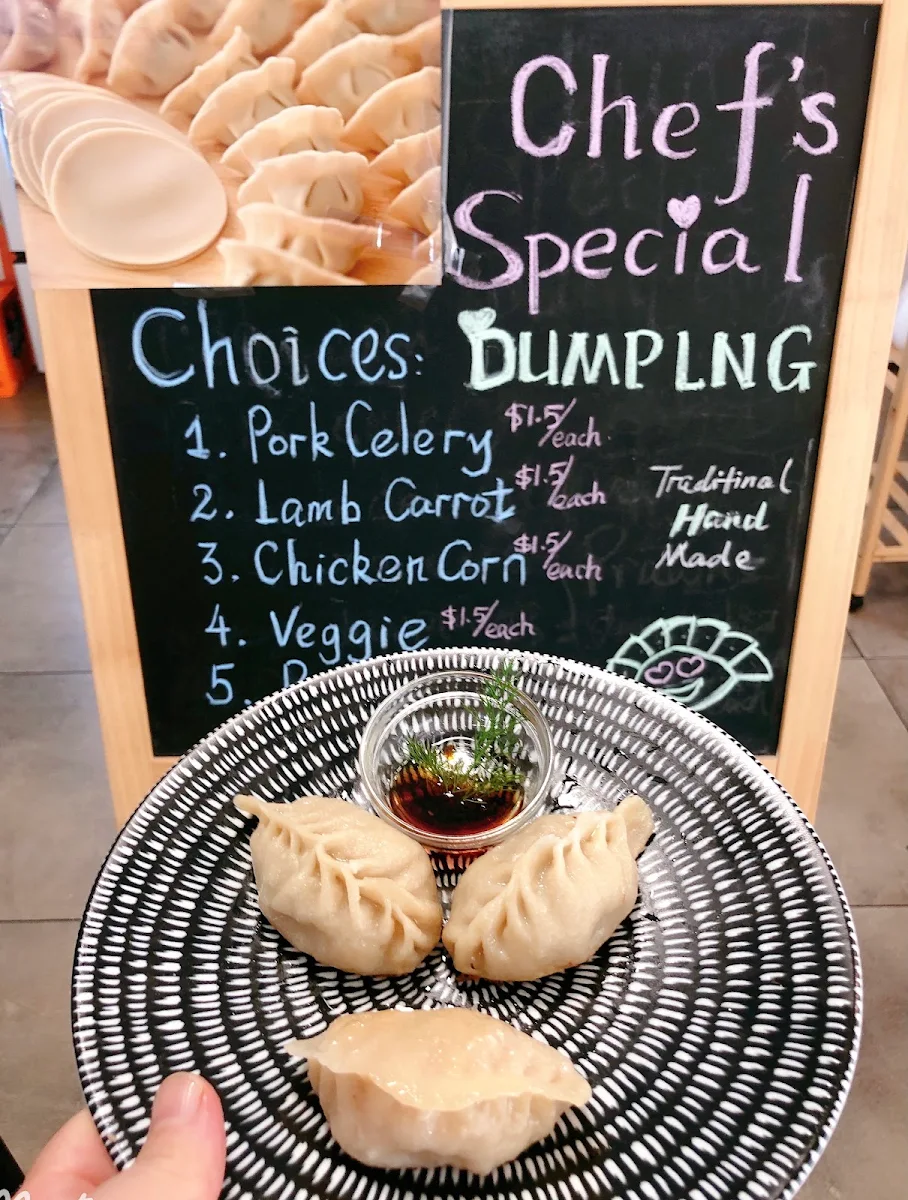 Chef's
Special
Choices: DUMPLNG
1. Pork Celery $1.5/each
2. Lamb Carrot $1.5/each
3. Chicken Corn $1.5/each
4. Veggie $1.5/each
5.
Traditinal
Hand
Made